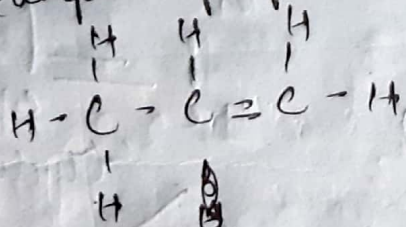 H H H
H - C - C = C - H
H